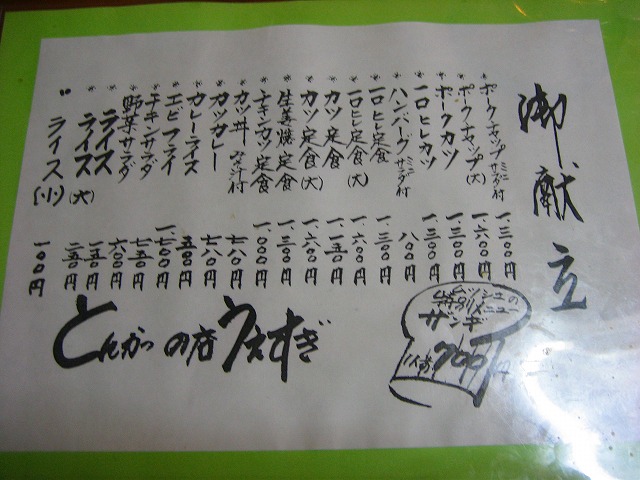 御献立
ポークチャップ ミニサラダ付 一、三〇〇円
ポークチャップ(大) 一、六〇〇円
ポークカツ 一、三〇〇円
一口ヒレカツ 一、三〇〇円
ハンバーグ ミニサラダ付 八〇〇円
一口ヒレ定食 一、三〇〇円
一口ヒレ定食(大) 一、六〇〇円
カツ定食 一、一五〇円
カツ定食(大) 一、六〇〇円
生姜焼定食 一、三〇〇円
チキンカツ定食 一、〇〇〇円
カツ丼 みそ汁付 七八〇円
カツカレー 七八〇円
カレーライス 五〇〇円
エビフライ 一、七〇〇円
チキンサラダ 七五〇円
野菜サラダ 六〇〇円
ライス 一五〇円
ライス(大) 二五〇円
〃 ライス(小) 一〇〇円
ムッシュの
特別メニュー
ザンギ
1人前700円
とんかつの店うえすぎ